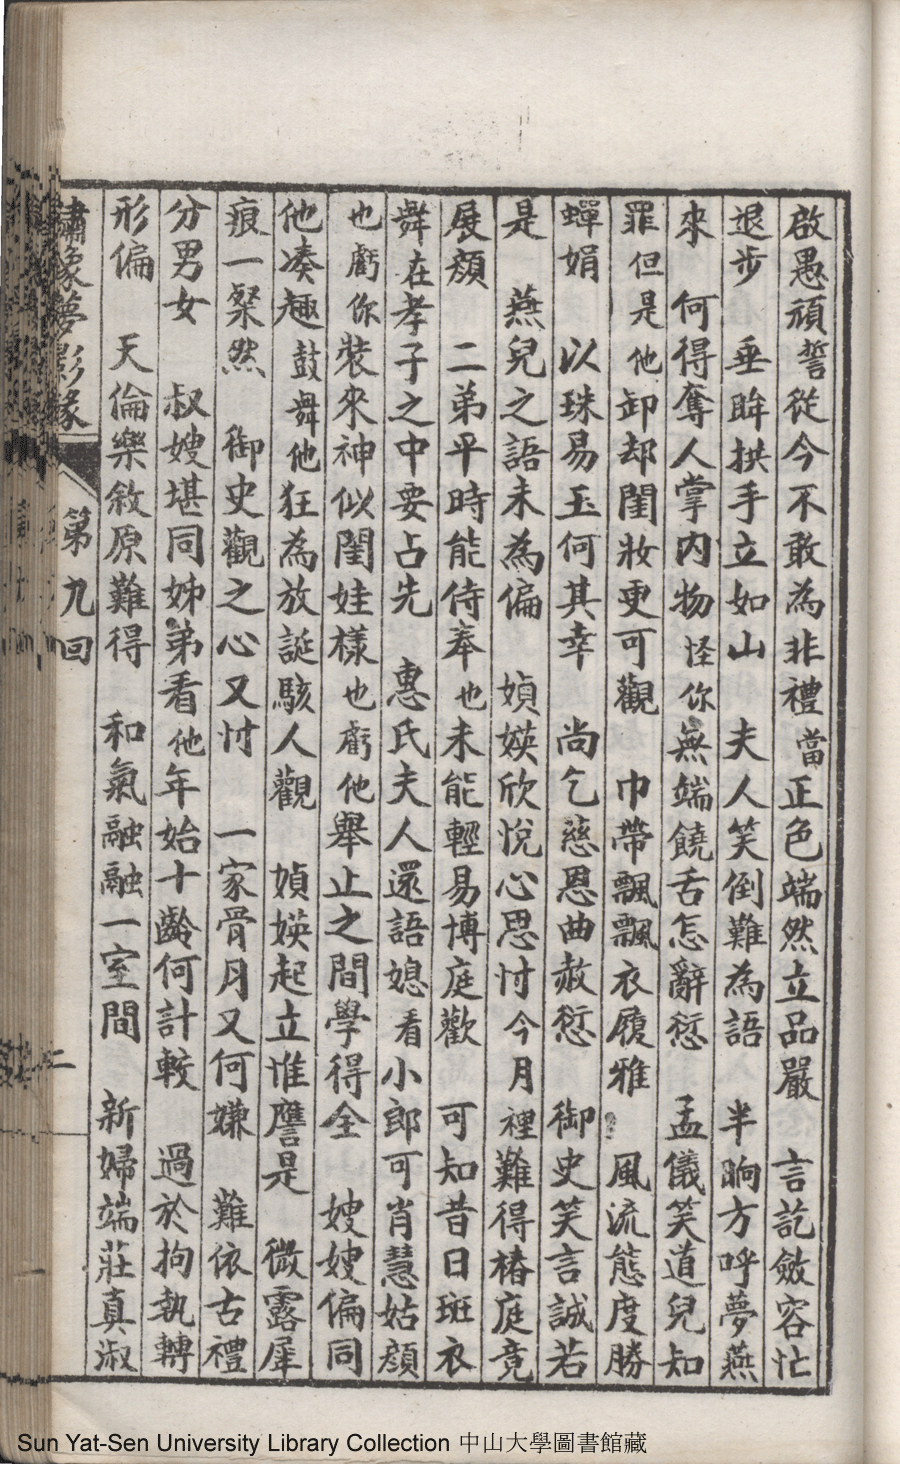 啟愚頑誓從今不敢為非禮當正色端然立品嚴　言訖斂容忙
退步　垂眸拱手立如山　夫人笑倒難為語　半晌方呼夢燕
來　何得奪人掌內物怪你無端饒舌怎辭愆　孟儀笑道兒知
罪但是他卸却閨妝更可觀　巾帶飄飄衣履雅　風流態度勝
蟬娟　以珠易玉何其幸　尚乞慈恩曲赦愆　御史笑言誠若
是　燕兒之語未為偏　媜媖欣悅心思忖今月裡難得椿庭竟
展顏　二弟平時能侍奉也未能輕易博庭歡　可知昔日斑衣
舞在孝子之中要占先　惠氏夫人還語媳看小郎可肖慧姑顏
也虧你裝來神似閨娃樣也虧他舉止之間學得全　嫂嫂偏同
他凑趣鼓舞他狂為放誕駭人觀　媜媖起立惟譍是　微露犀
痕一粲然　御史觀之心又忖　一家骨月又何嫌　難依古禮
分男女　叔嫂堪同姊弟看他年始十齡何計較　過於拘執轉
形偏　天倫樂敘原難得　和氣融融一室間　新婦端莊真淑
繡像夢影緣　第九回　二
Sun Yat-Sen University Library Collection 中山大學圖書館藏